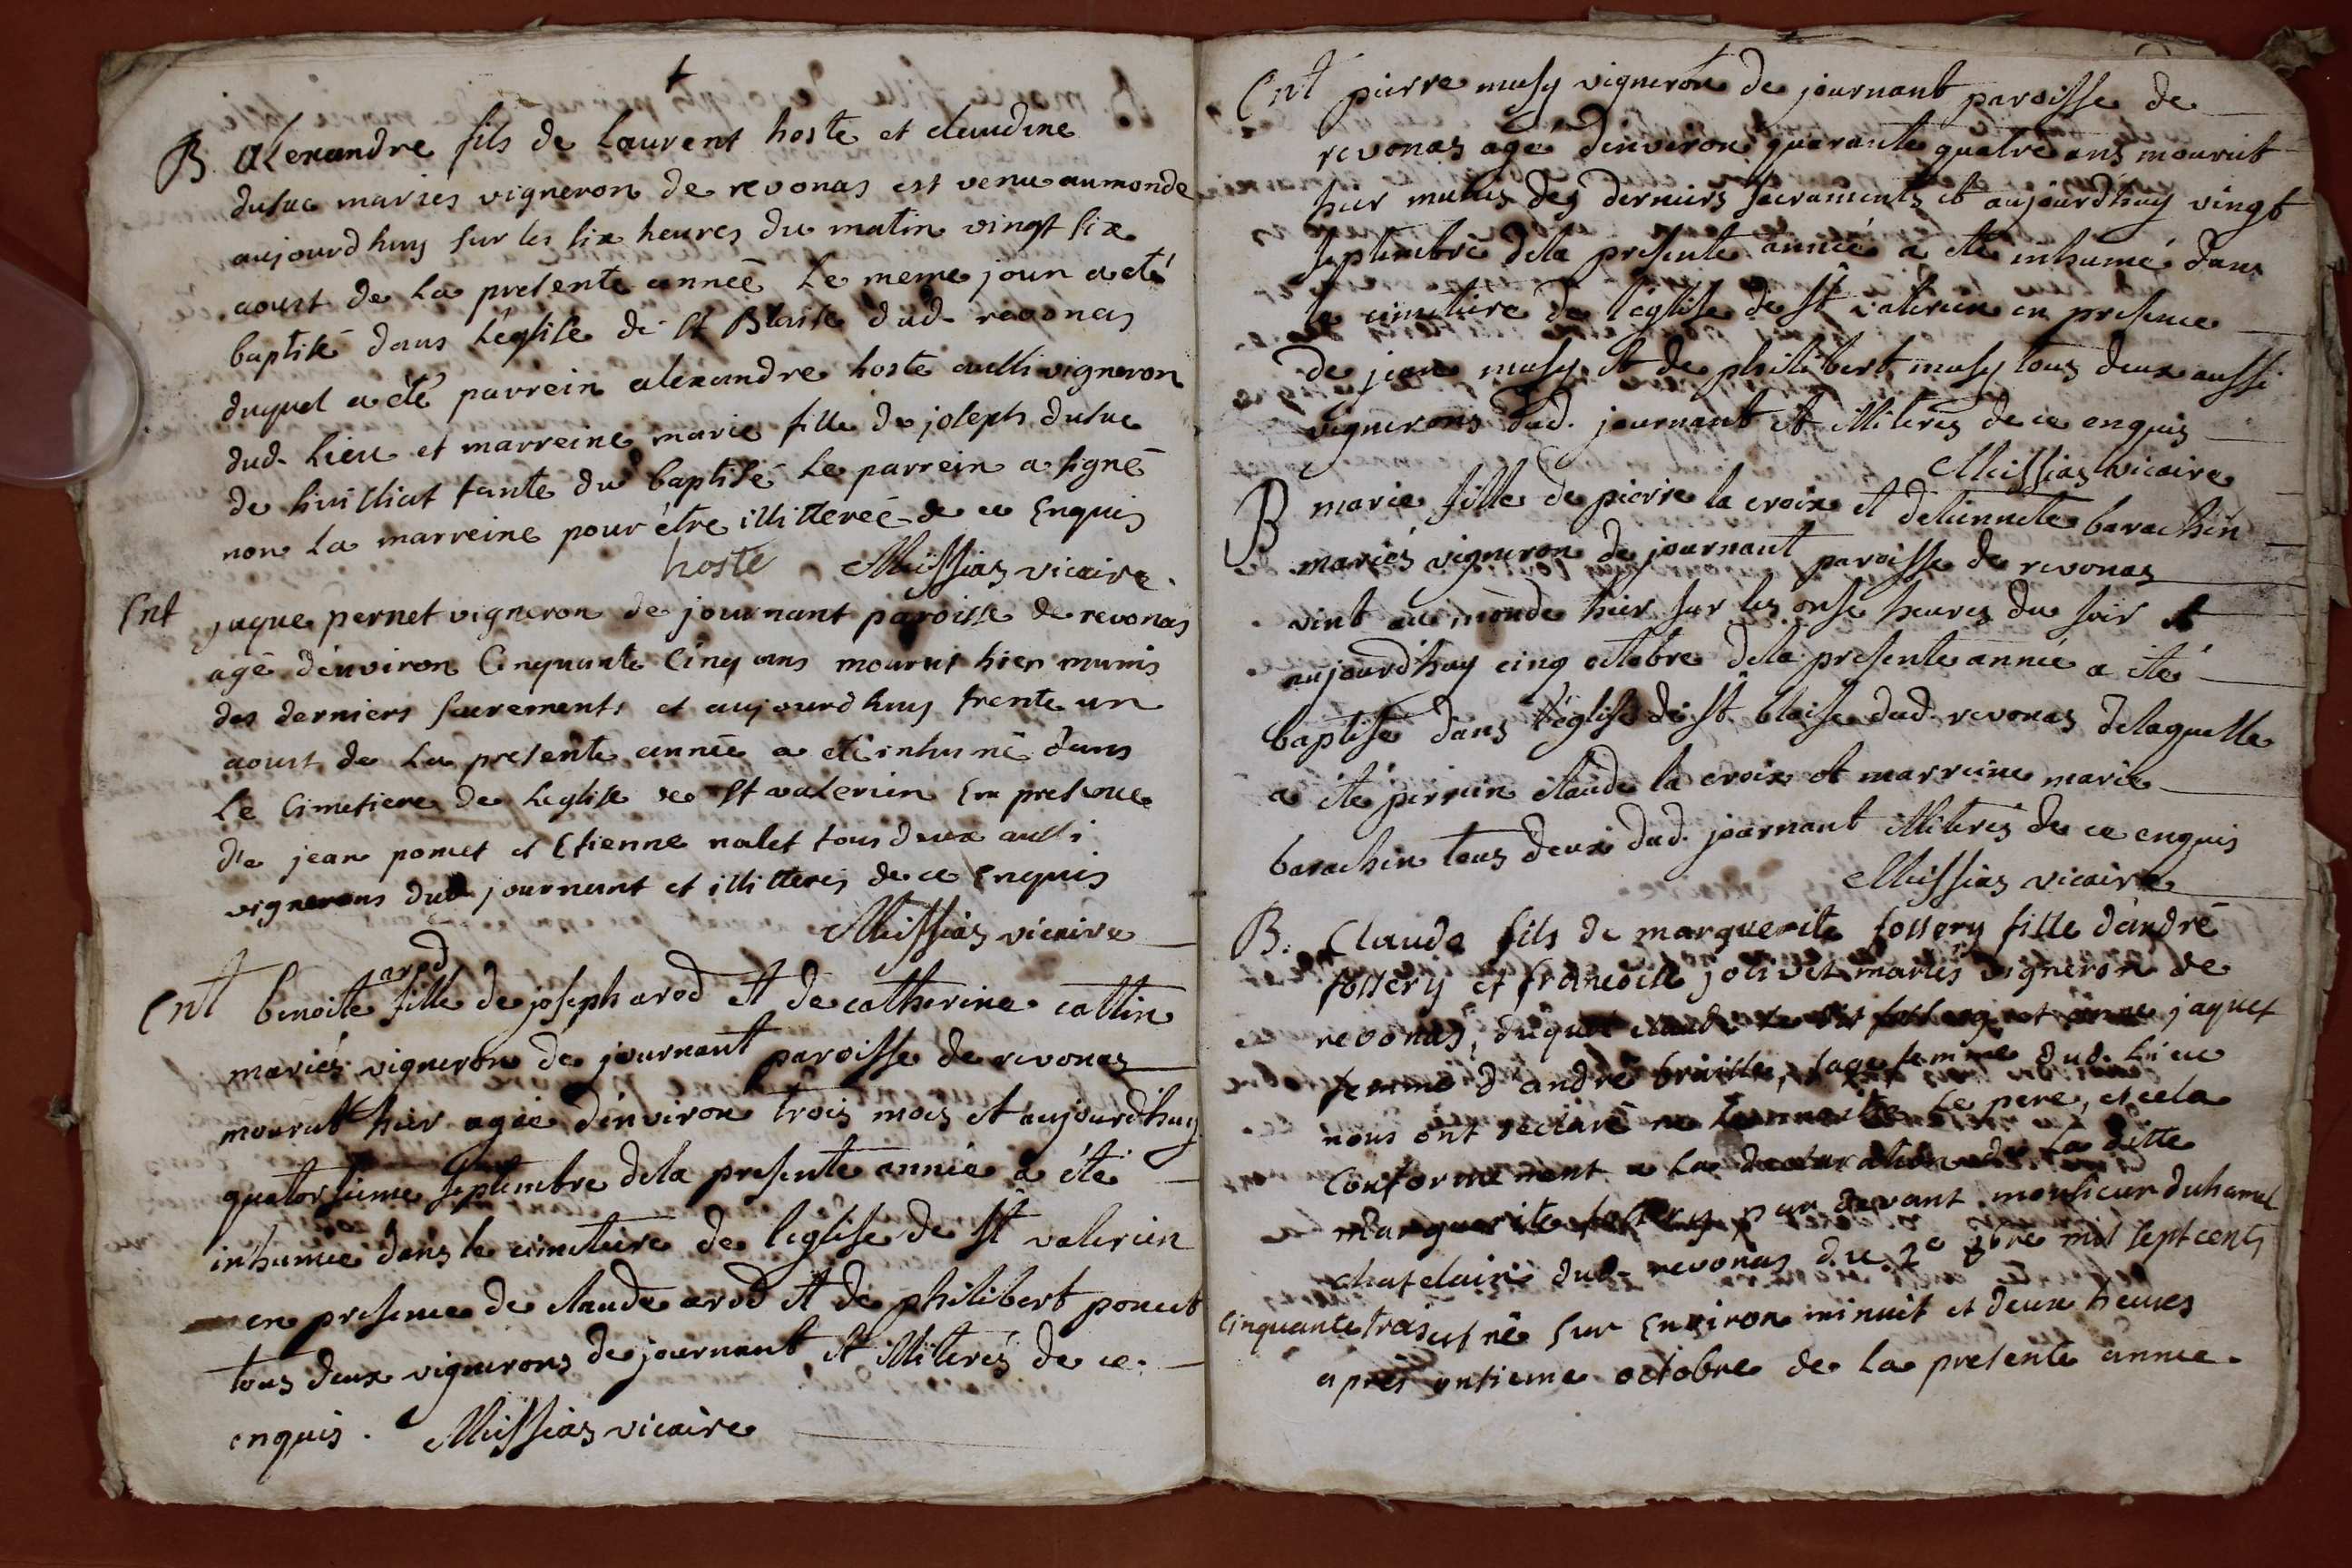 B. alexandre fils de laurent hoste et claudine
dusuc maries vigneron de revonas est venu au monde
aujourd huy sur les six heures du matin vingt six
aoust de la presente année le meme jour a eté
baptisé dans l'eglise de st Blaise dud. revonas
duquel a eté parrein alexandre hoste aussi vigneron
dud. lieu et marreine marie fille de joseph dusuc
de tante du baptisé le parrein a signé
non la marreine pour être illitteréé de ce Enquis
hoste Meissias vicaire.
Ent jaque pernet vigneron de journant paroisse de revonas
agé d'environ Cinquante Cinq ans mourut hier munis
des derniers sacrements et aujourd huy trente un
aoust de la presente année a eté inhumé dans
le Cimetiere de leglise de st valerien En presence
de jean pomet et Etienne nalet tous deux aussi
vignerons dud journant et illitterés de ce Enquis
Meissias vicaire
arod
Ent benoite fille de joseph arod et de catherine cattin
mariés vigneron de journant paroisse de revonas
mourut hier agée d'environ trois mois et aujourd'huy
quatorsieme septembre dela presente année a été
inhumée dans le cimetiere de l'eglise de st valerien
en presence de claude arod et de philibert poncet
tous deux vignerons de journant et illiterés de ce
enquis. Meissias vicaire
Ent pierre musy vigneron de journant paroisse de
revonas agé d'environ quarante quatre ans mourut
hier munis des derniers sacraments et aujourd'huy vingt
septembre dela presente année a eté inhumé dans
le cimetiere de l'eglise de st valerien en presence
de jean musy et de philibert musy tous deux aussi
vignerons dud. journant et illiterés de ce enquis
Meissias vicaire
B marie fille de pierre la croix et detiennete barachin
mariés vigneron de journant paroisse de revonas
vint au monde hier sur les onse heures du soir et
aujourd'huy cinq octobre dela presente année a été
baptisé dans l'église de st blaise dud. revonas delaquelle
a été perrein claude la croix et marreine marie
barachin tous deux dud. journant illiterés de ce enquis
Meissias vicaire
B. Claude fils de marguerite fossery fille d'andré
fossery et francoise jolivet mariés vigneron de
revonas, duquel et anne jaquet
femme d'andré braille, sage femme dud. lieu
nous ont declaré ne le pere, et cela
Conformement a la declaration de la ditte
marguerite fossery par devant monsieur duhamel
chatelain dud. revonas du 2e mil sept cents
cinquante trois est né sur Environ minuit et deux heures
apres ontieme octobre de la presente année.